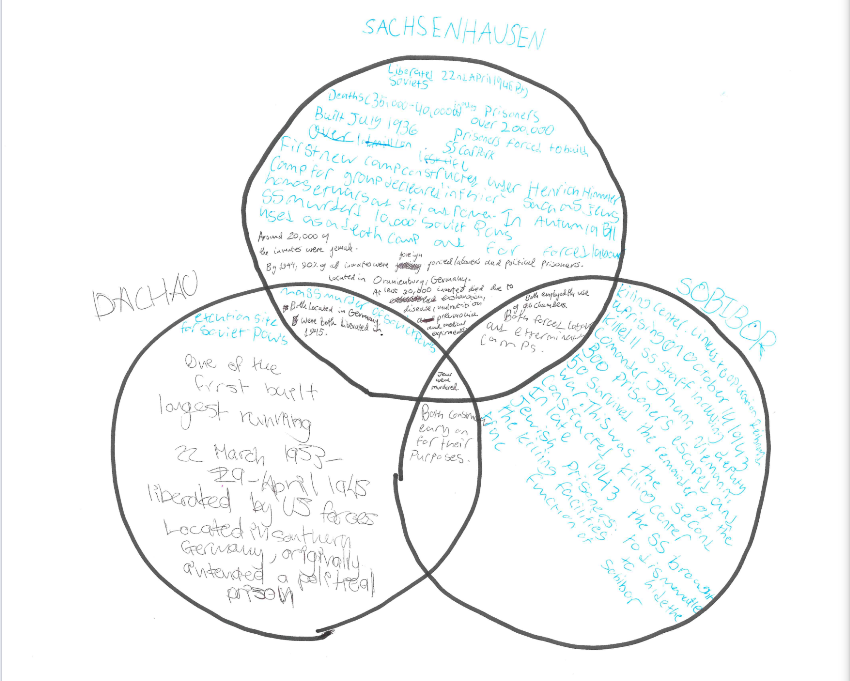 SACHSENHAUSEN
Liberated 22nd April 1945 By
Soviets
Deaths (35,000-40,000) Prisoners
over 200,000
Built July 1936
prisoners forced to build
First new camp constructed under Henrich Himmler
Camp for group declared inferior
In Autumn 1941
SS murders 10,000 Soviet Pows
used as a death camp and for forced labour
Around 20,000 of
the inmates were female.
By 1944, 90% of all inmates were foreign forced labourers and political prisoners.
Located in Oranienburg, Germany.
At least 30,000 inmates died due to
exhaustion,
disease, malnutrition
pneumonia
and medical
experiments
DACHAU
execution site
for Soviet Pows
One of the
first built
largest running
22 March 1933-
29-April 1945
liberated by US forces
Located in Southern
Germany, originally
intented a political
prison
mass murder of Soviet Pows
Both Located in Germany.
were both Liberated in
1945.
Both employed the use
of gas chambers.
Both forced labour
and extermination
camps.
Jews
were
murdered
Both constructed
early on
for their
purposes.
SOBIBOR
Killing center
Uprising on October 14 1943
Killed 11 SS staff including deputy
commander Johann Niemann
300 prisoners escaped and
50 survived the remainder of the
war. This was the second
constructed killing center
In late 1943 the SS brought
Jewish prisoners to dismantle
the killing facilities to hide the
function of Sobibor